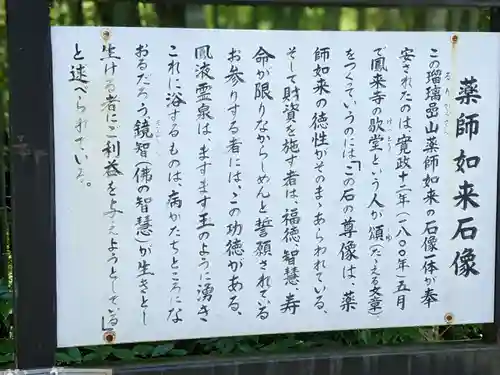 薬師如来石像
この瑠璃嵒山薬師如来の石像一体が奉
安されたのは、寛政十二年(一八〇〇年)五月
で鳳来寺の歇堂という人が頌(たたえる文章)
をつくっていうのには、「この石の尊像は、薬
師如来の徳性がそのままあらわれている、
そして財資を施す者は、福徳、智慧、寿
命が限りなからしめんと誓願されている
お参りする者には、この功徳がある、
鳳液霊泉は、ますます玉のように湧き
これに浴するものは病かたちところにな
おるだろう、鏡智(佛の智慧)が生きとし
生ける者にご利益を与えようとしている」
と述べられている。